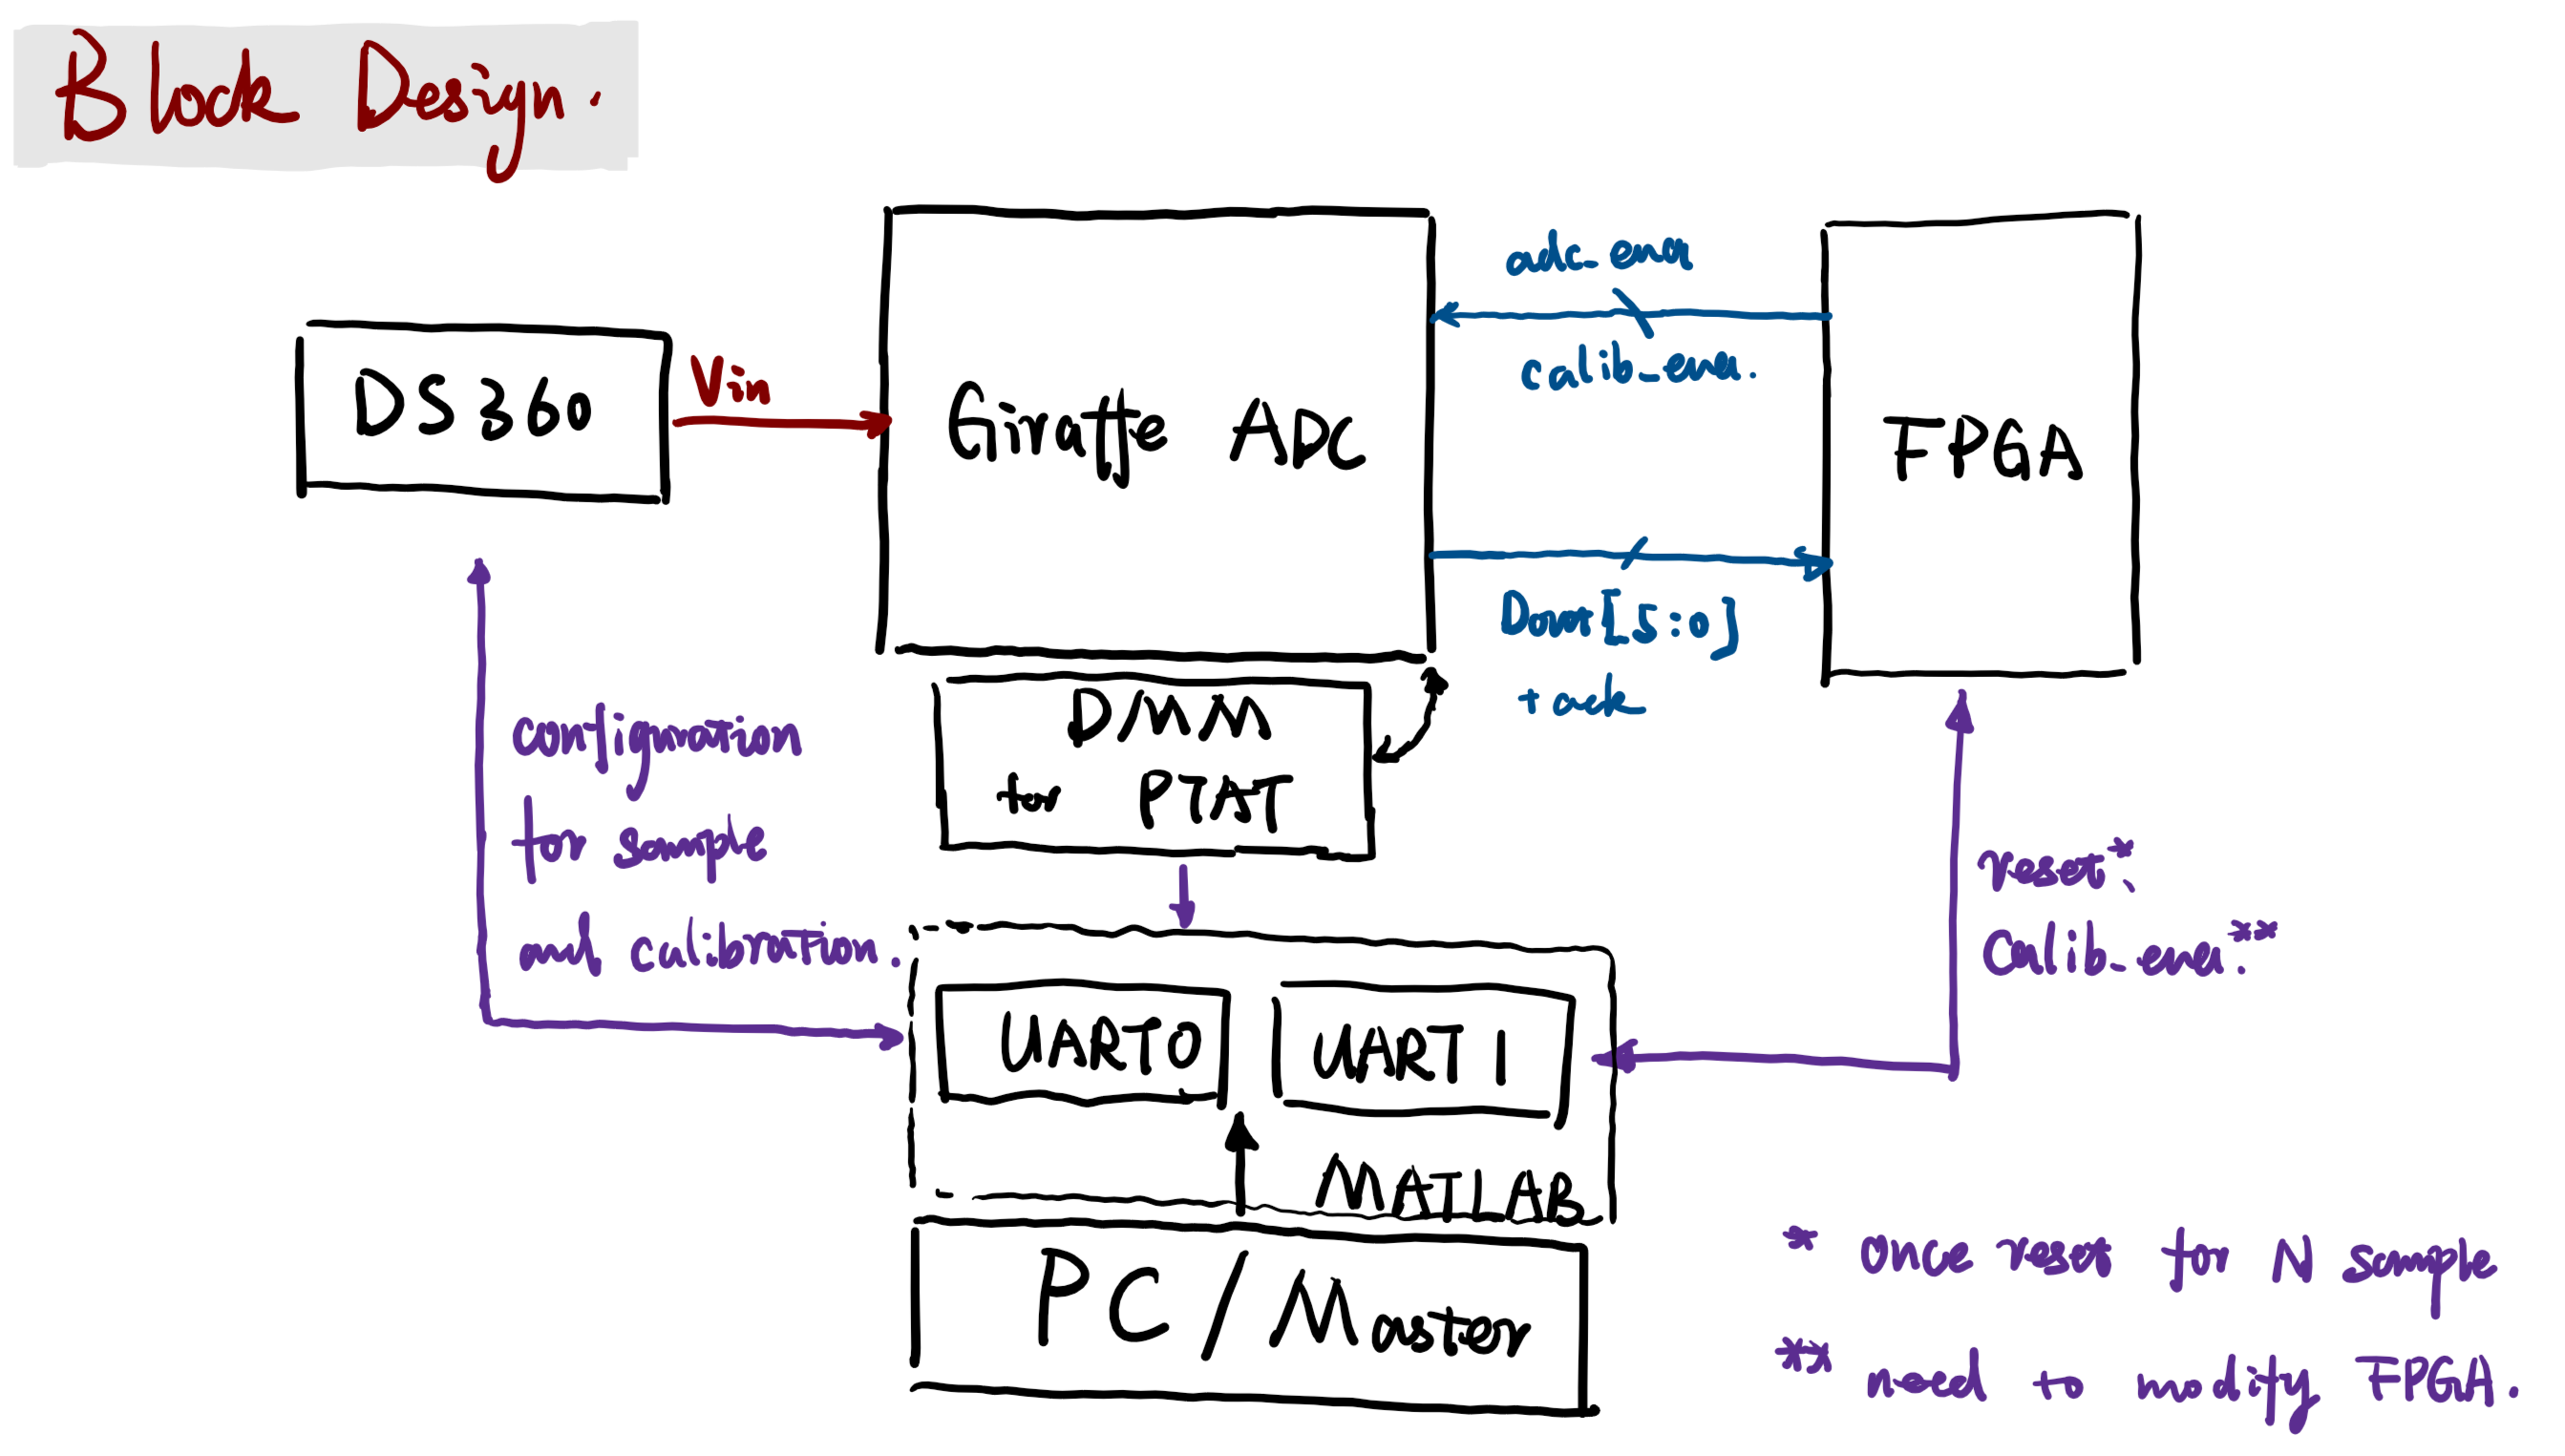 Block Design.
DS360
Vin
Giraffe ADC
adc_ena
calib_ena.
FPGA
Dout[5:0]
+ ack
DMM
for PTAT
configuration
for sample
and calibration.
reset*.
Calib_ena.**
UART0
UART1
MATLAB
PC/Master
* once reset for N sample
** need to modify FPGA.